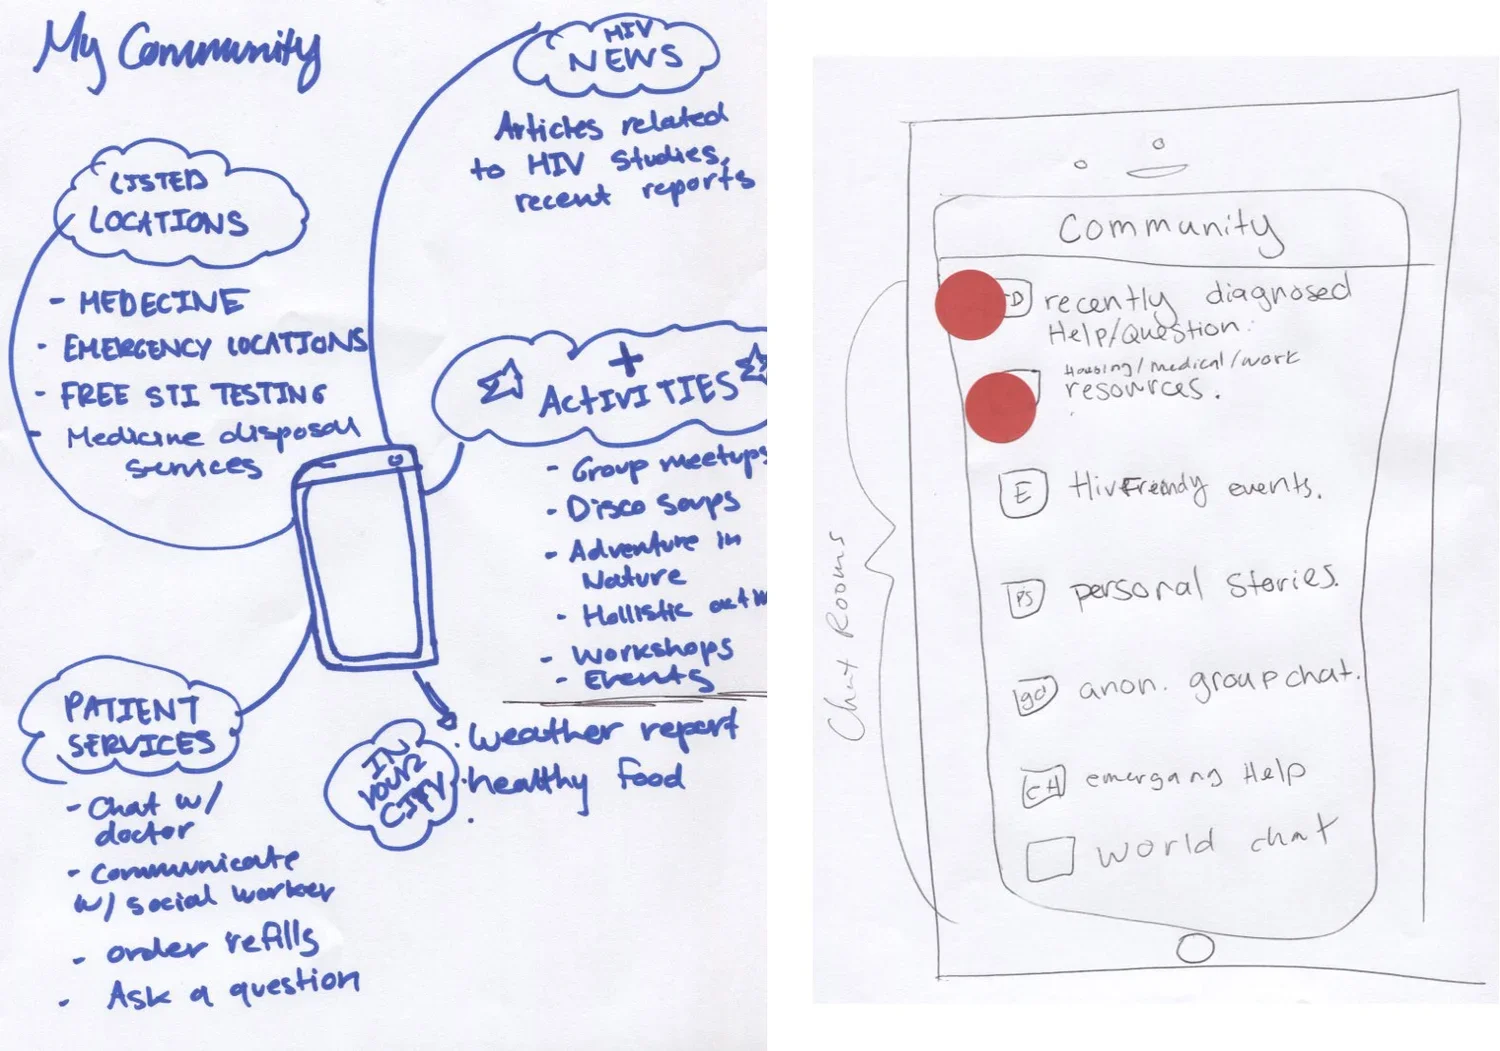 My Community
HIV
NEWS
Articles related
to HIV studies,
recent reports
LISTED
LOCATIONS
- MEDECINE
- EMERGENCY LOCATIONS
- FREE STI TESTING
- Medicine disposal
services
+
ACTIVITIES
- Group meetups
- Disco Soups
- Adventure in
Nature
- Hollistic
- Workshops
- Events
PATIENT
SERVICES
- Chat w/
doctor
- Communicate
w/ social worker
- order refills
- Ask a question
IN
YOUR
CITY
· weather report
· healthy food
Chat Rooms
Community
D recently diagnosed
Help/Question.
Housing/medical/work
resources.
E Hiv friendly events.
PS personal stories.
gc anon. group chat.
world chat